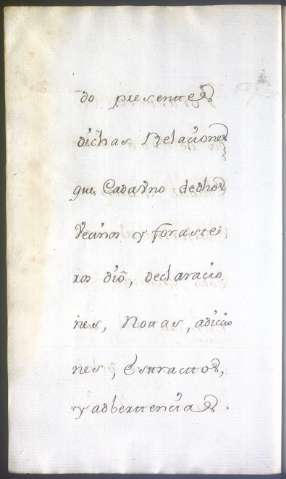 do presentes
dichas Relaciones
que Cada vno de dhos
Vecinos y foraste
ros dió, declaracio
nes, Notas, adiccio
nes, extractos,
y adbertencias.